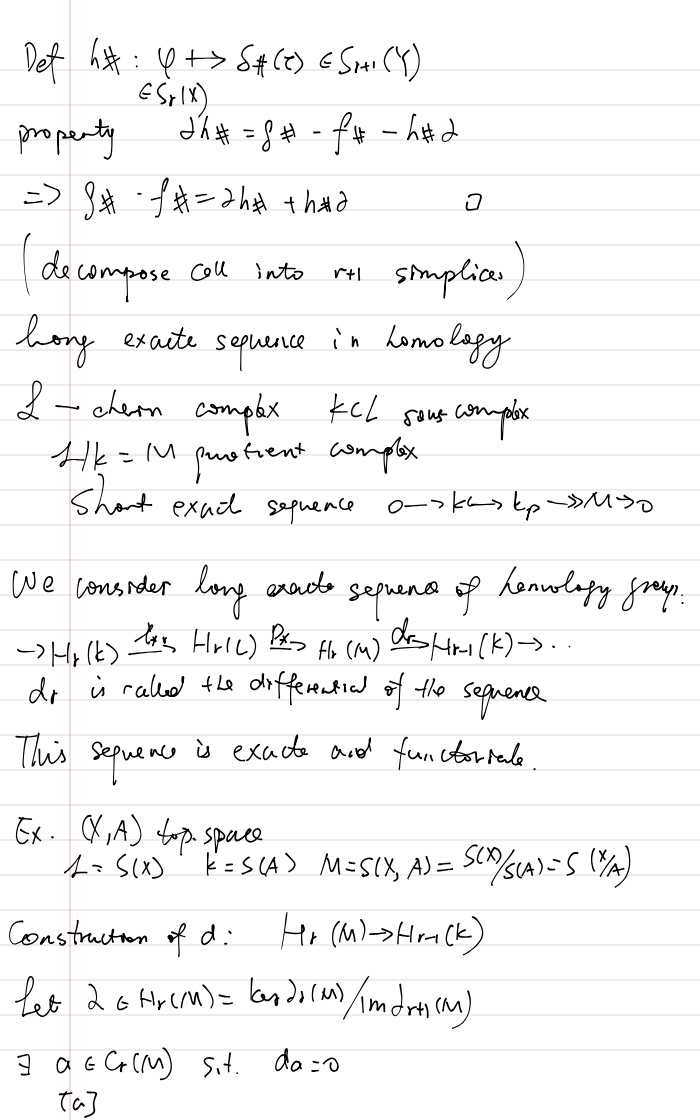 Def h# : φ ↦ δ#(τ) ∈ Sr+1(Y)
∈ Sr(X)
property ∂h# = g# - f# - h#∂
=> g# - f# = ∂h# + h#∂ □
(decompose cell into r+1 simplices)
Long exacte sequence in homology
L - chern complex K⊂L sous complex
L/k = M quotient complex
Short exact sequence 0 → k ↪ kp ↠ M → 0
We consider long exacte sequence of homology group.
→ Hr(k) → Hr(L) →(P*) Hr(M) →(dr) Hr-1(k) → ..
dr is called the differential of the sequence
This sequence is exacte and functoriale.
Ex. (X,A) top. space
L = S(X) k = S(A) M = S(X,A) = S(X)/S(A) = S(X/A)
Construction of d : Hr(M) → Hr-1(k)
Let λ ∈ Hr(M) = ker ∂r(M)/Im ∂r+1(M)
∃ a ∈ Cr(M) s.t. da = 0
[a]